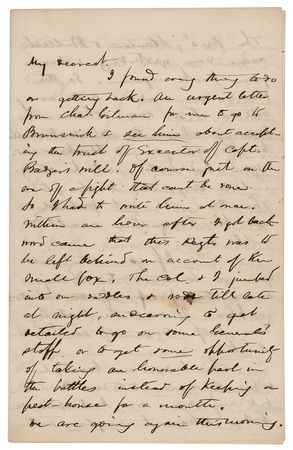 My dearest.
I found every thing to do
on getting back. An urgent letter
from Chas. Gilman for me to go to
Brunswick & see him about accept-
ing the trust of Executor of Capt.
Badgers will. Of course just on the
eve of a fight that cant be done.
So I had to write him at once.
Within an hour after I got back
word came that this Regt. was to
be left behind on account of the
small pox. The Col & I jumped
into our saddles & rode till late
at night, endeavoring to get
detailed to go on some General's
staff or to get some opportunity
of taking an honorable part in
the battles instead of keeping a
pest-house for a month.
We are going again this morning.